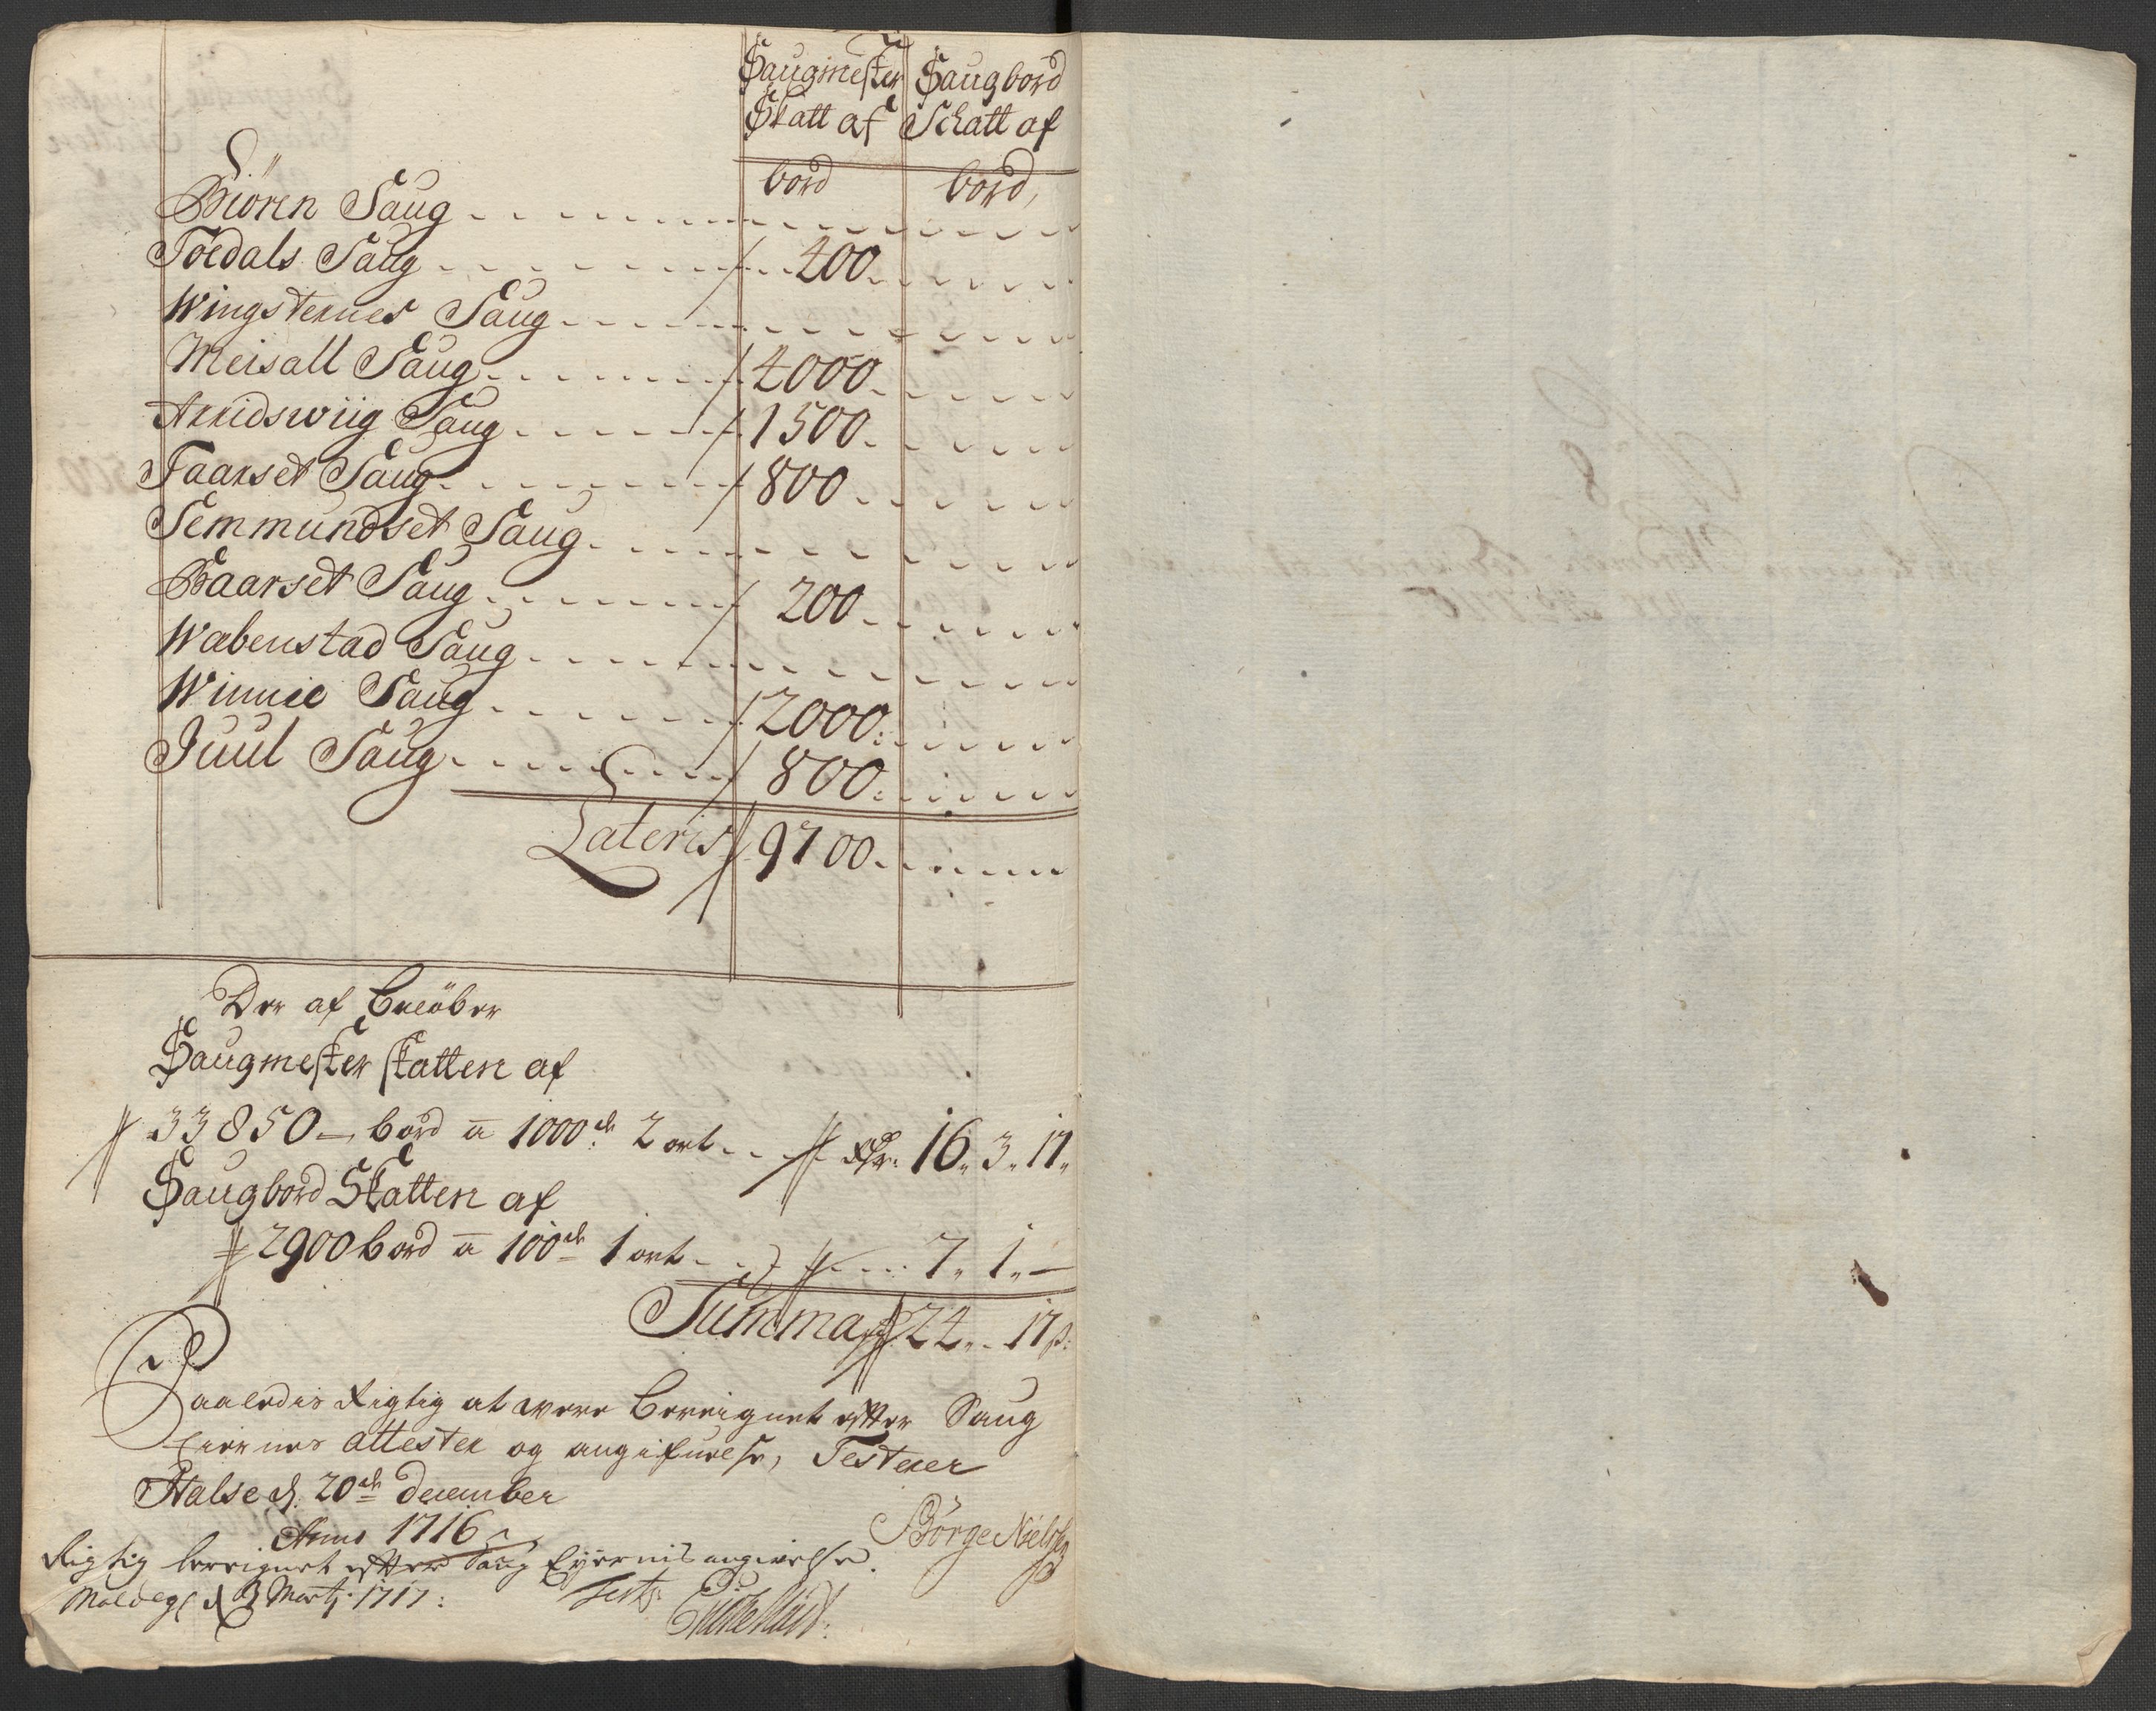 Saugmester Saugbord
Skatt af Schatt af
bord bord,
Biören Saug
Toedals Saug 400
Wingsternes Saug
Meisall Saug 4000
Arridswiig Saug 1500
Taarset Saug 800
Semmundset Saug
Baarset Saug 200
Wabenstad Saug
Winnie Saug 2000
Juul Saug 800
Lateris 9700
Der af belöber
Saugmester skatten af
33850 bord a 1000de 2 ort Rdr: 16„ 3„ 17„
Saugbord Skatten af
2900 bord a 100de 1 ort 7„ 1„ —
Summa 24„ - 17 s:
Saaledis Rigtig at were Bereignet efter Saug
Eiernes attester og angifuelse, Testerer
Halse d. 20de December
Anno 1716
Börge Nielsen
Rigtig bereignet efter Saug Eyernis angivelse.
Molde d. 3 Martj 1717: test: